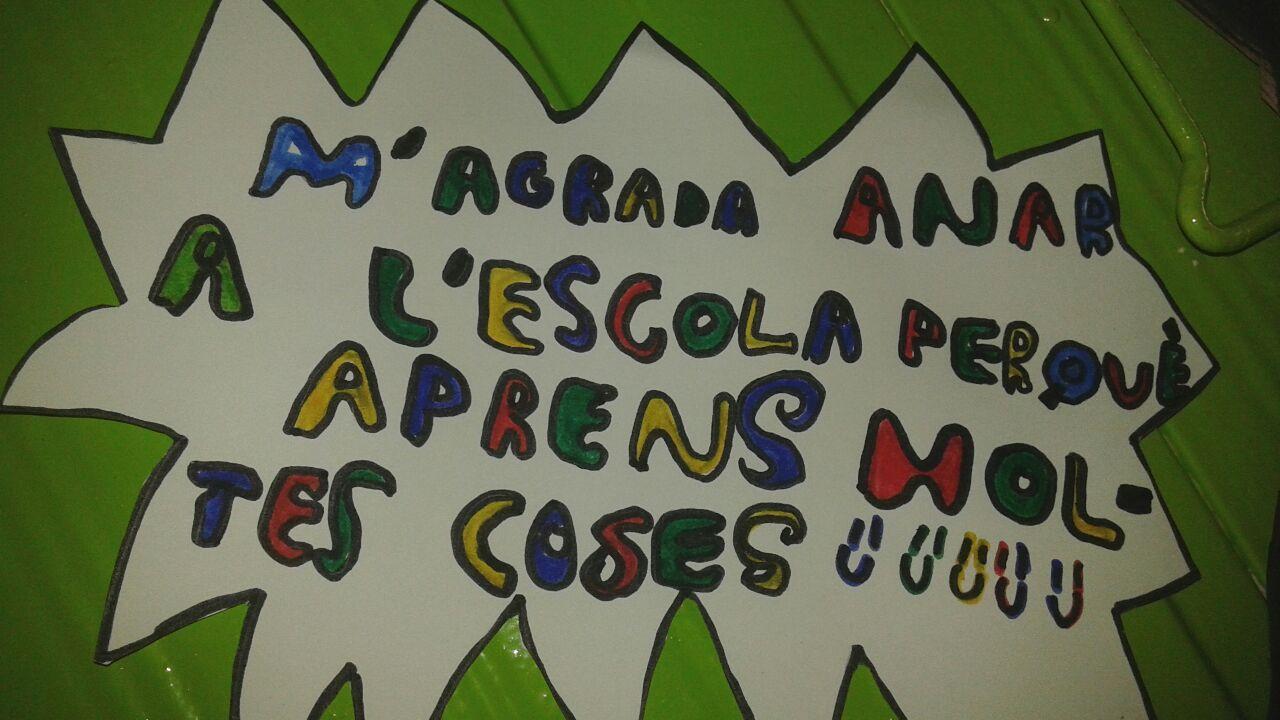 M'AGRADA ANAR
A L'ESCOLA PERQUÈ
APRENS MOL-
TES COSES !!!!!